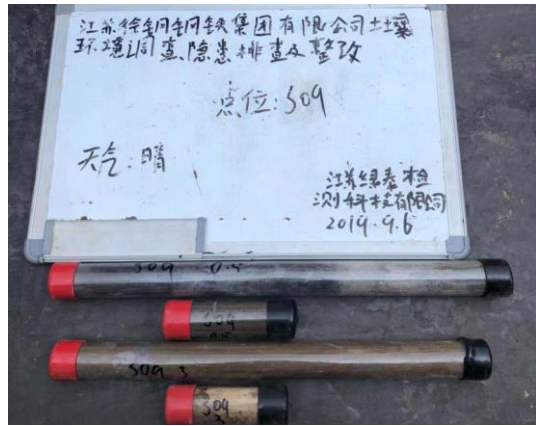 江苏徐钢钢铁集团有限公司土壤
环境调查、隐患排查及整改
点位:S09
天气:晴
江苏绿泰检
测科技有限公司
2019.9.6
S09 0.5
S09
0.5
S09 3
S09
3